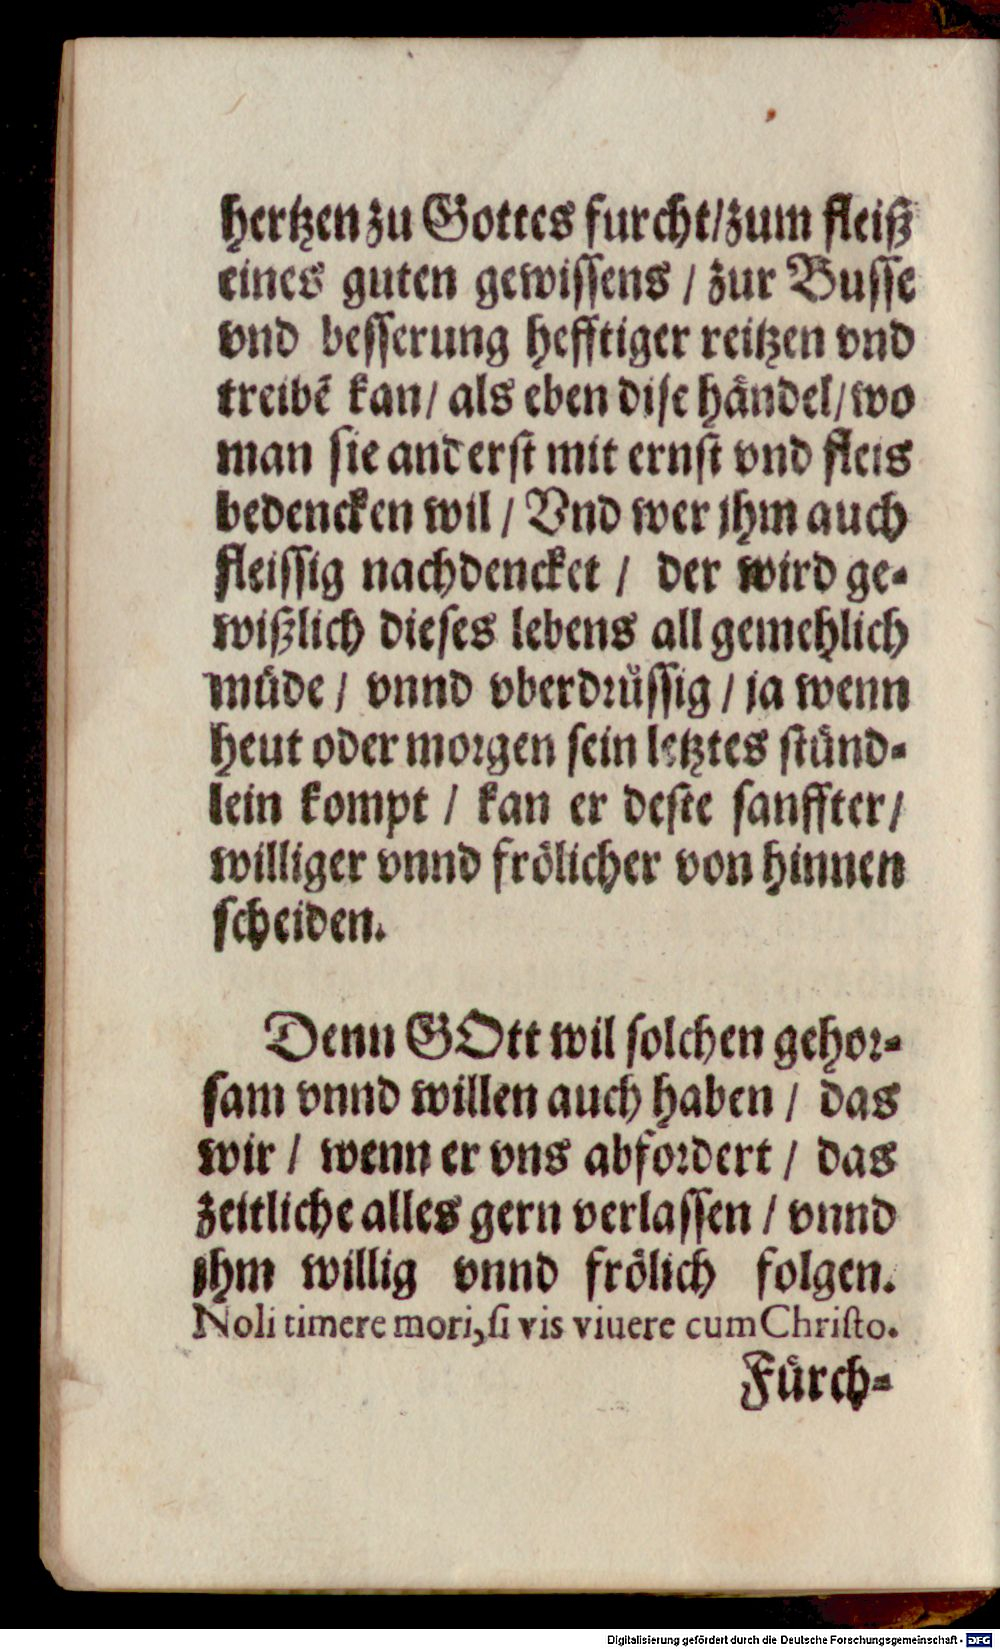 hertzen zu Gottes furcht/zum fleiß
eines guten gewissens / zur Busse
vnd besserung hefftiger reitzen vnd
treibẽ kan/ als eben dise händel/wo
man sie anderst mit ernst vnd fleis
bedencken wil / Vnd wer jhm auch
fleissig nachdencket / der wird ge-
wißlich dieses lebens all gemehlich
müde / vnnd vberdrüssig / ja wenn
heut oder morgen sein letztes stünd-
lein kompt / kan er deste sanffter/
williger vnnd frölicher von hinnen
scheiden.
Denn GOtt wil solchen gehor-
sam vnnd willen auch haben / das
wir / wenn er vns abfordert / das
zeitliche alles gern verlassen / vnnd
jhm willig vnnd frölich folgen.
Noli timere mori, si vis viuere cum Christo.
Fürch-
Digitalisierung gefördert durch die Deutsche Forschungsgemeinschaft - DFG